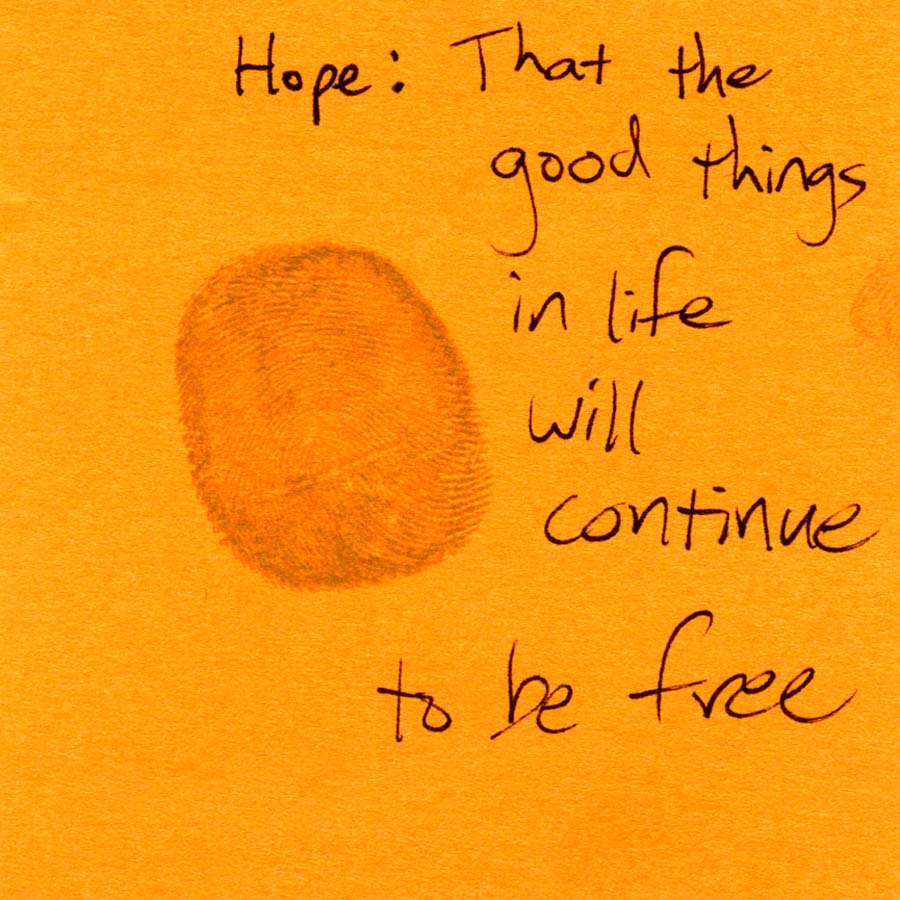 Hope: That the
good things
in life
will
continue
to be free